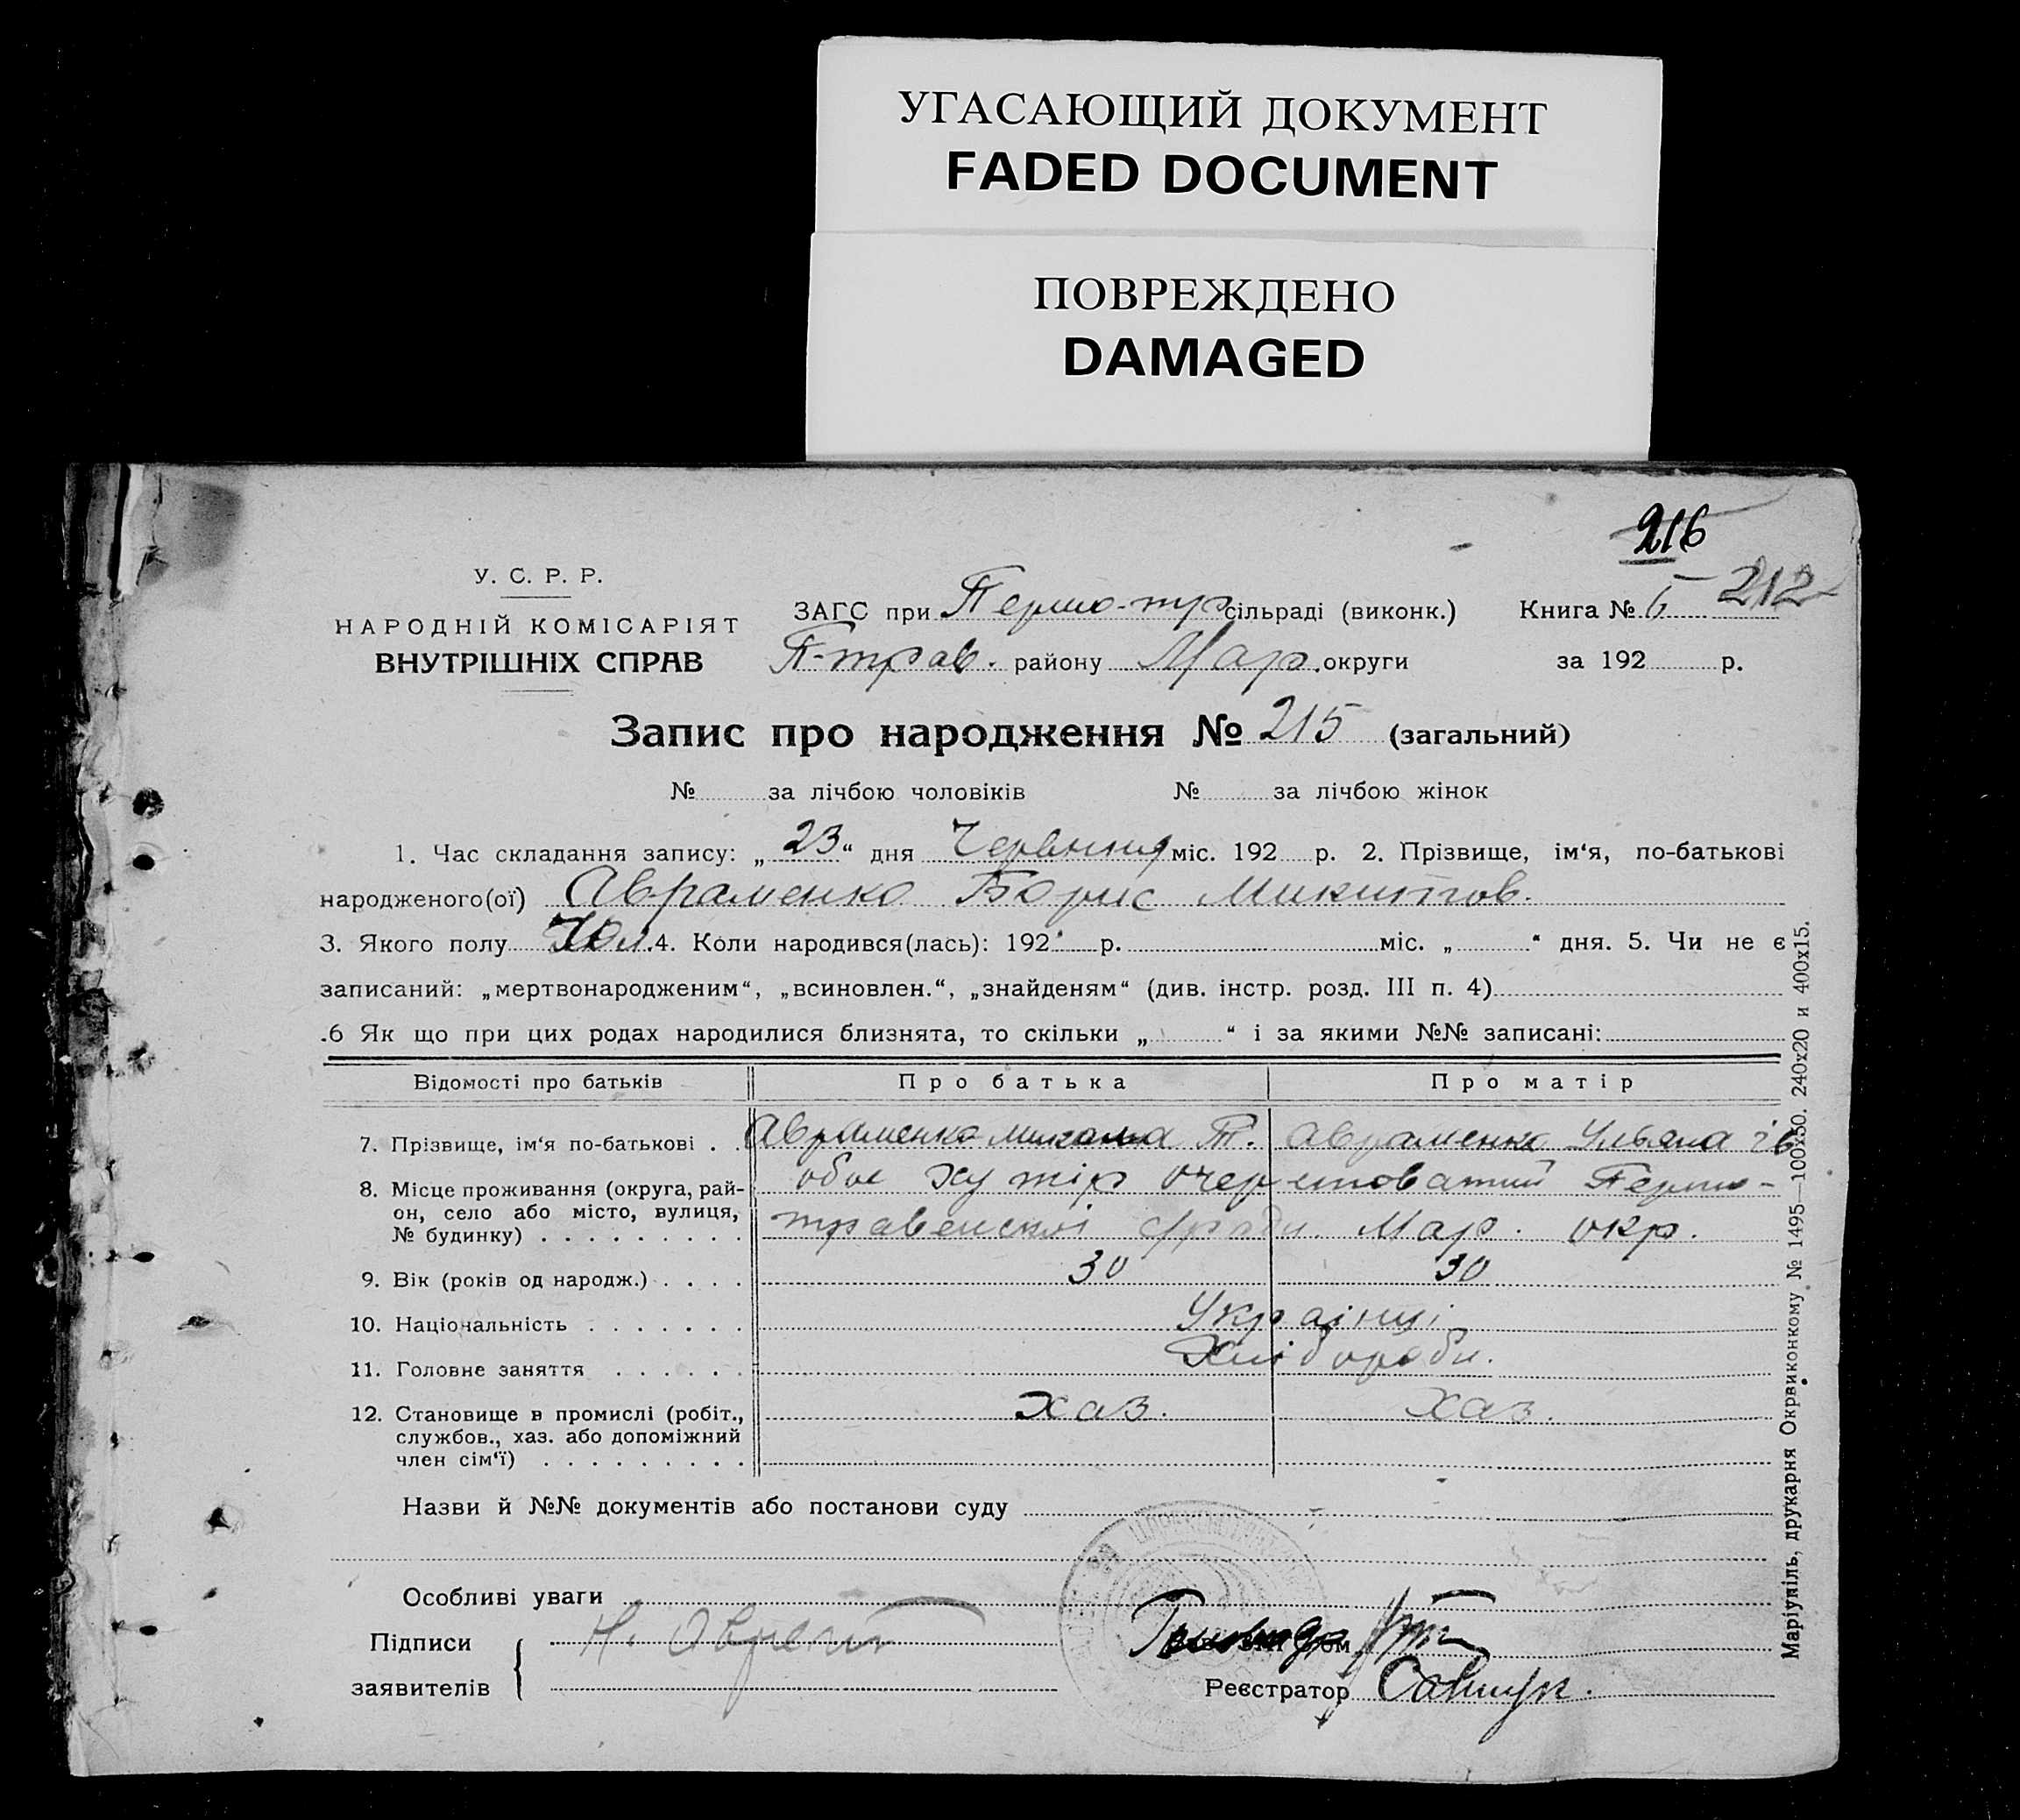 УГАСАЮЩИЙ ДОКУМЕНТ
FADED DOCUMENT
ПОВРЕЖДЕНО
DAMAGED
216
212
У. С. Р. Р.
НАРОДНІЙ КОМІСАРІЯТ
ВНУТРІШНІХ СПРАВ
ЗАГС при Першо-тр сільраді (виконк.) Книга №
П-трав. району Мар. округи за 192 р.
Запис про народження № 215 (загальний)
№ за лічбою чоловіків № за лічбою жінок
1. Час складання запису: „ 23 “ дня Червння міс. 192 р. 2. Прізвище, ім‘я, по-батькові
народженого(ої) Авраменко Борис Микитов.
3. Якого полу Чол. 4. Коли народився(лась): 192 р. міс. „ “ дня. 5. Чи не є
записаний: „мертвонародженим“, „всиновлен.“, „знайденям“ (див. інстр. розд. III п. 4)
.6 Як що при цих родах народилися близнята, то скільки „ “ і за якими №№ записані:
Відомості про батьків Про батька Про матір
7. Прізвище, ім‘я по-батькові . . Авраменко Т. Авраменко Ульяна ів
8. Місце проживання (округа, рай-
он, село або місто, вулиця,
№ будинку) . . . . . . . . .
обоє хутір Очеретоватий Першо-
травенскоі с/ради. Мар. окр.
9. Вік (років од народж.) . . . . 30 30
10. Національність . . . . . . . Украінці
11. Головне заняття . . . . . . Хлібороби.
12. Становище в промислі (робіт.,
службов., хаз. або допоміжний
член сім‘ї) . . . . . . . . .
хаз. хаз.
Назви й №№ документів або постанови суду
Особливі уваги
Підписи
заявителів
Н.
Реєстратор
Маріупіль, друкарня Окрвиконкому № 1495—100х50. 240х20 и 400х15.